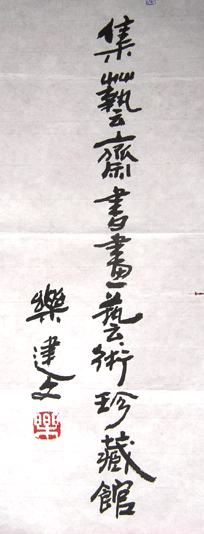 集藝齋書畫藝術珍藏館
樂建文
樂